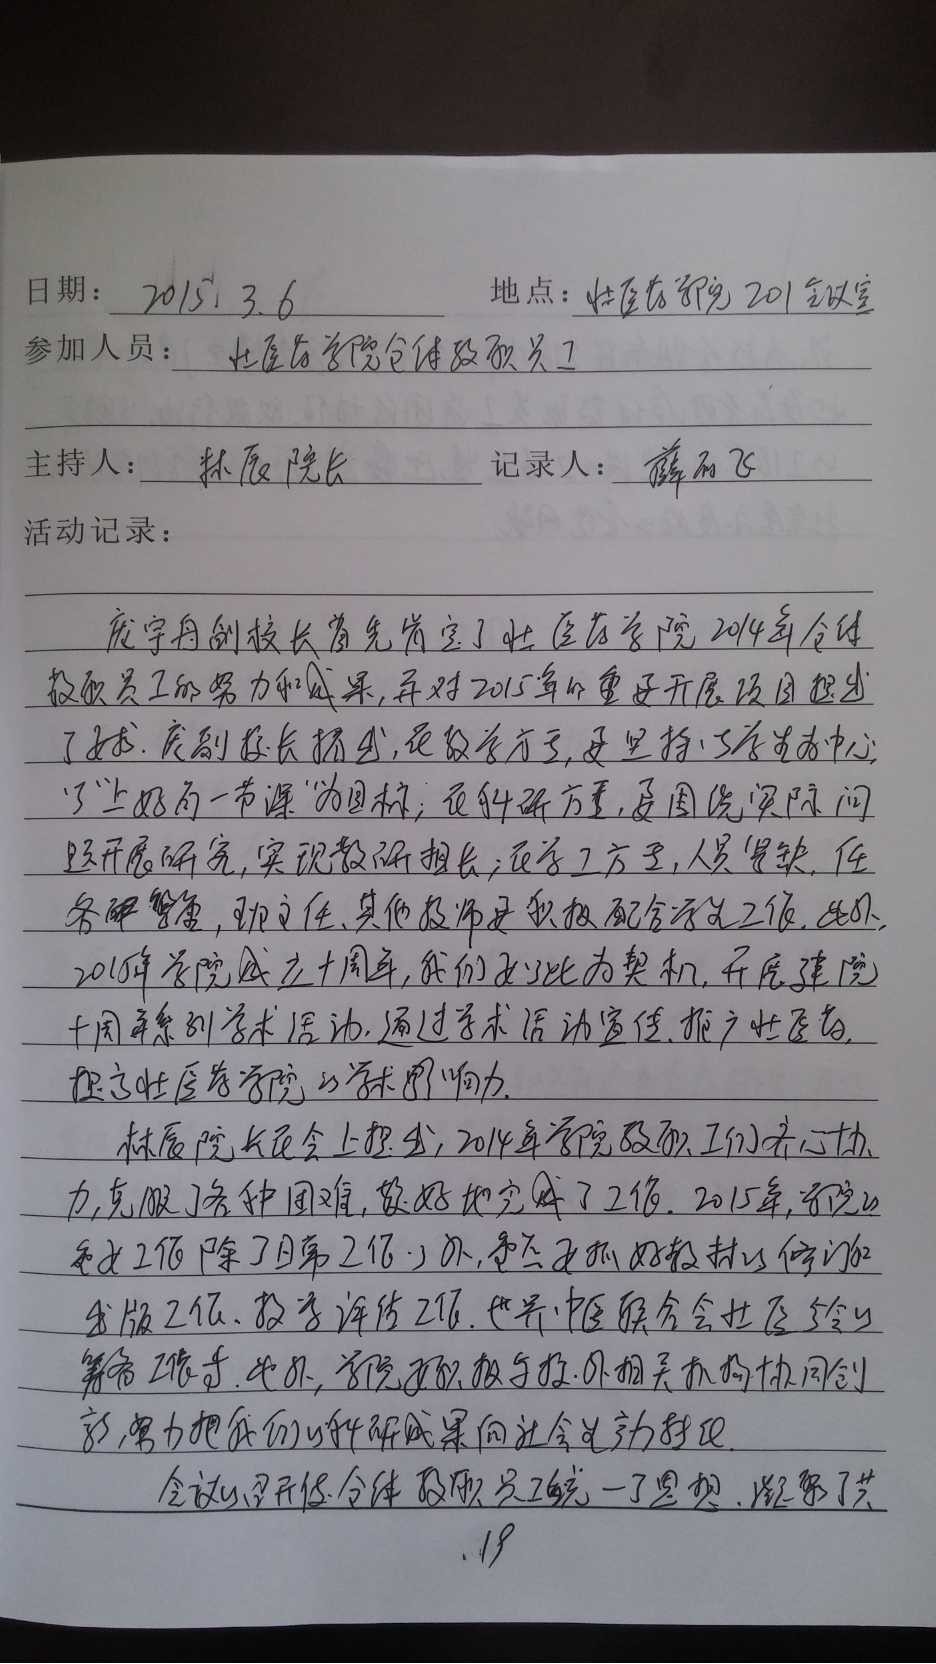 日期： 2015.3.6 地点：壮医药学院201会议室
参加人员： 壮医药学院全体教职员工
主持人： 林辰院长 记录人： 薛丽飞
活动记录：
庞宇舟副校长首先肯定了壮医药学院2014年全体
教职员工的努力和成果，并对2015年的重要开展项目提出
了要求。庞副校长指出，在教学方面，要坚持以学生为中心，
以“上好每一节课”为目标；在科研方面，要围绕实际问
题开展研究，实现教研相长；在学工方面，人员紧缺，任
务繁重，班主任、其他教师要积极配合学生工作。此外，
2015年学院成立十周年，我们要以此为契机，开展建院
十周年系列学术活动，通过学术活动宣传、推广壮医药，
提高壮医药学院的学术影响力。
林辰院长在会上提出，2014年学院教职工们齐心协
力，克服了各种困难，较好地完成了工作。2015年，学院的
重要工作除了日常工作以外，重点要抓好教材的修订和
出版工作、教学评估工作、世界中医联合会壮医分会的
筹备工作等。此外，学院要积极与校外相关机构协同创
新，努力把我们的科研成果向社会生产力转化。
会议的召开使全体教职员工统一了思想，凝聚了共
.19